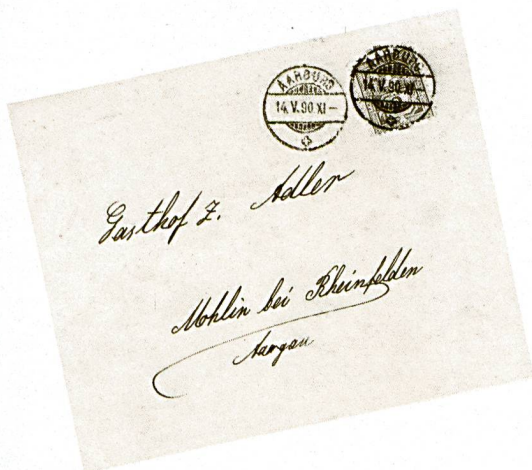 AARBURG
14.V.90 XI-
AARBURG
14.V.90 XI-
Gasthof z. Adler
Mohlin bei Rheinfelden
Aargau